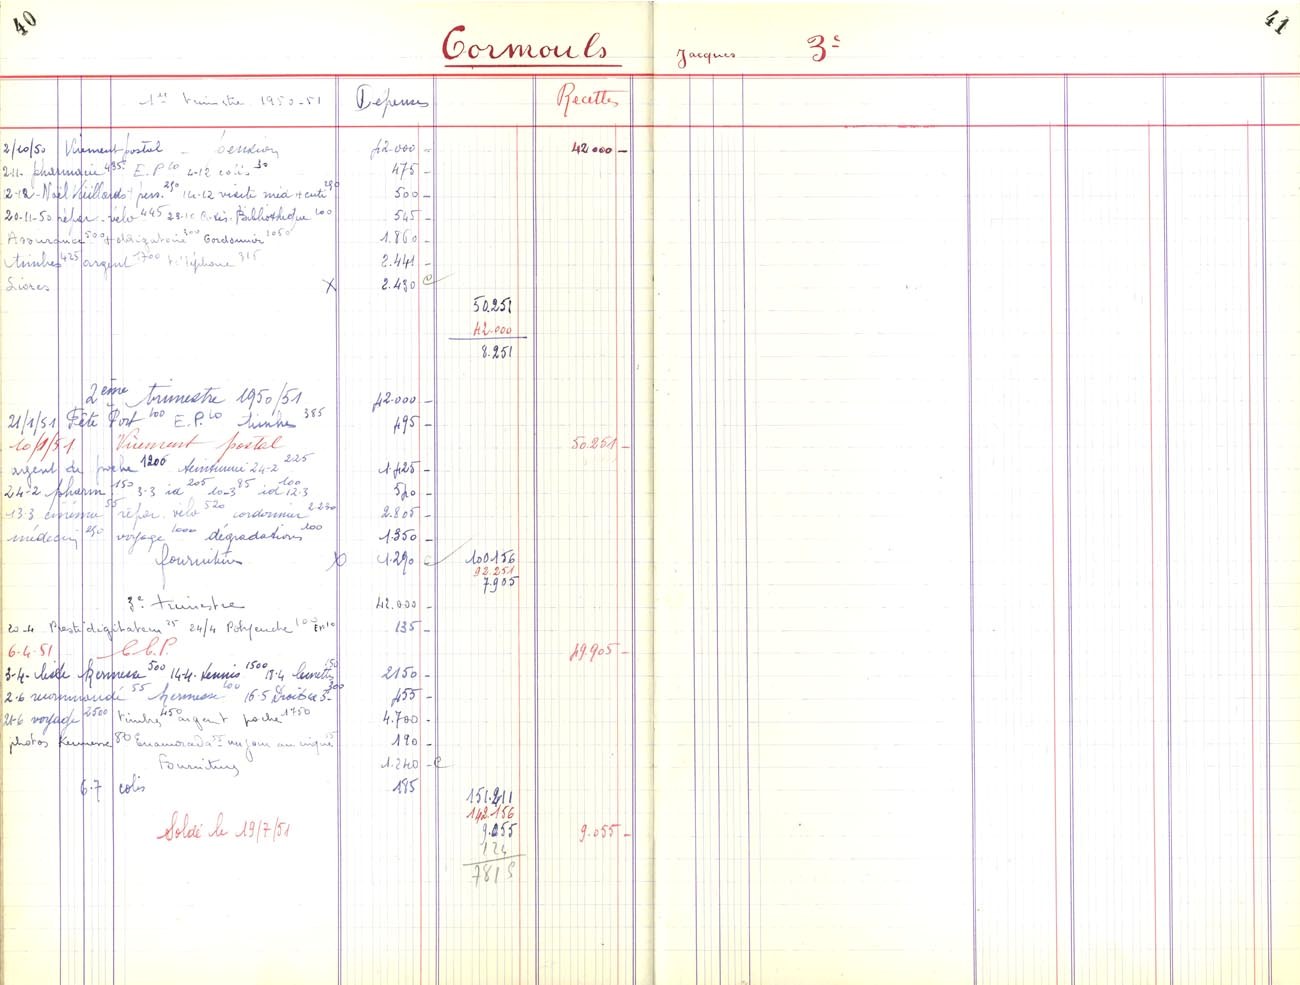 40
41
Cormouls Jacques 3e
1er trimestre 1950-51 Dépenses Recettes
2/10/50 Virement postal - Pension 42.000 - 42.000 -
2-11- pharmacie 435 E.P 10 4-12 colis 30 475 -
2-12- Noël Vieillards + pers. 14-12 visite méd + cuti 500 -
20-11-50 répar. vélo 445 Bibliothèque 100 545 -
Assurance 500 + obligatoire 300 Cordonnier 1050 1.860 -
timbres 425 argent 1700 téléphone 316 2.441 -
Livres X 2.430 C
50.251
42.000
8.251
2ème trimestre 1950/51 42.000 -
21/1/51 Fête Port 100 E.P. 10 timbres 385 495 -
10/1/51 Virement postal 50.251 -
argent de poche 1200 teinturier 24-2 225 1.425 -
24-2 pharm 150 3-3 id 205 10-3 85 id 12.3 100 540 -
13-3 cinéma 55 répar. vélo 520 cordonnier 2230 2.805 -
médecin 250 voyage 1000 dégradations 100 1350 -
fournitures X 1.290 C 100156
92.251
7.905
3e trimestre 42.000 -
20-4 Prestidigitateur 25 24/4 Polyeucte 100 EP 10 135 -
6-4-51 C.C.P. 49.905 -
3-4- liste Kermesse 500 14-4- tennis 1500 18-4 lunettes 150 2150 -
2-6 recommandé 55 Kermesse 100 16-5 300 455 -
21-6 voyage 2500 timbres 450 argent poche 1750 4.700 -
photos Kermesse 80 un jour au cirque 190 -
Fournitures 1.240 - C
6-7 colis 185
151.211
142.156
9.055
Soldé le 19/7/51 9.055 -
124
781 S